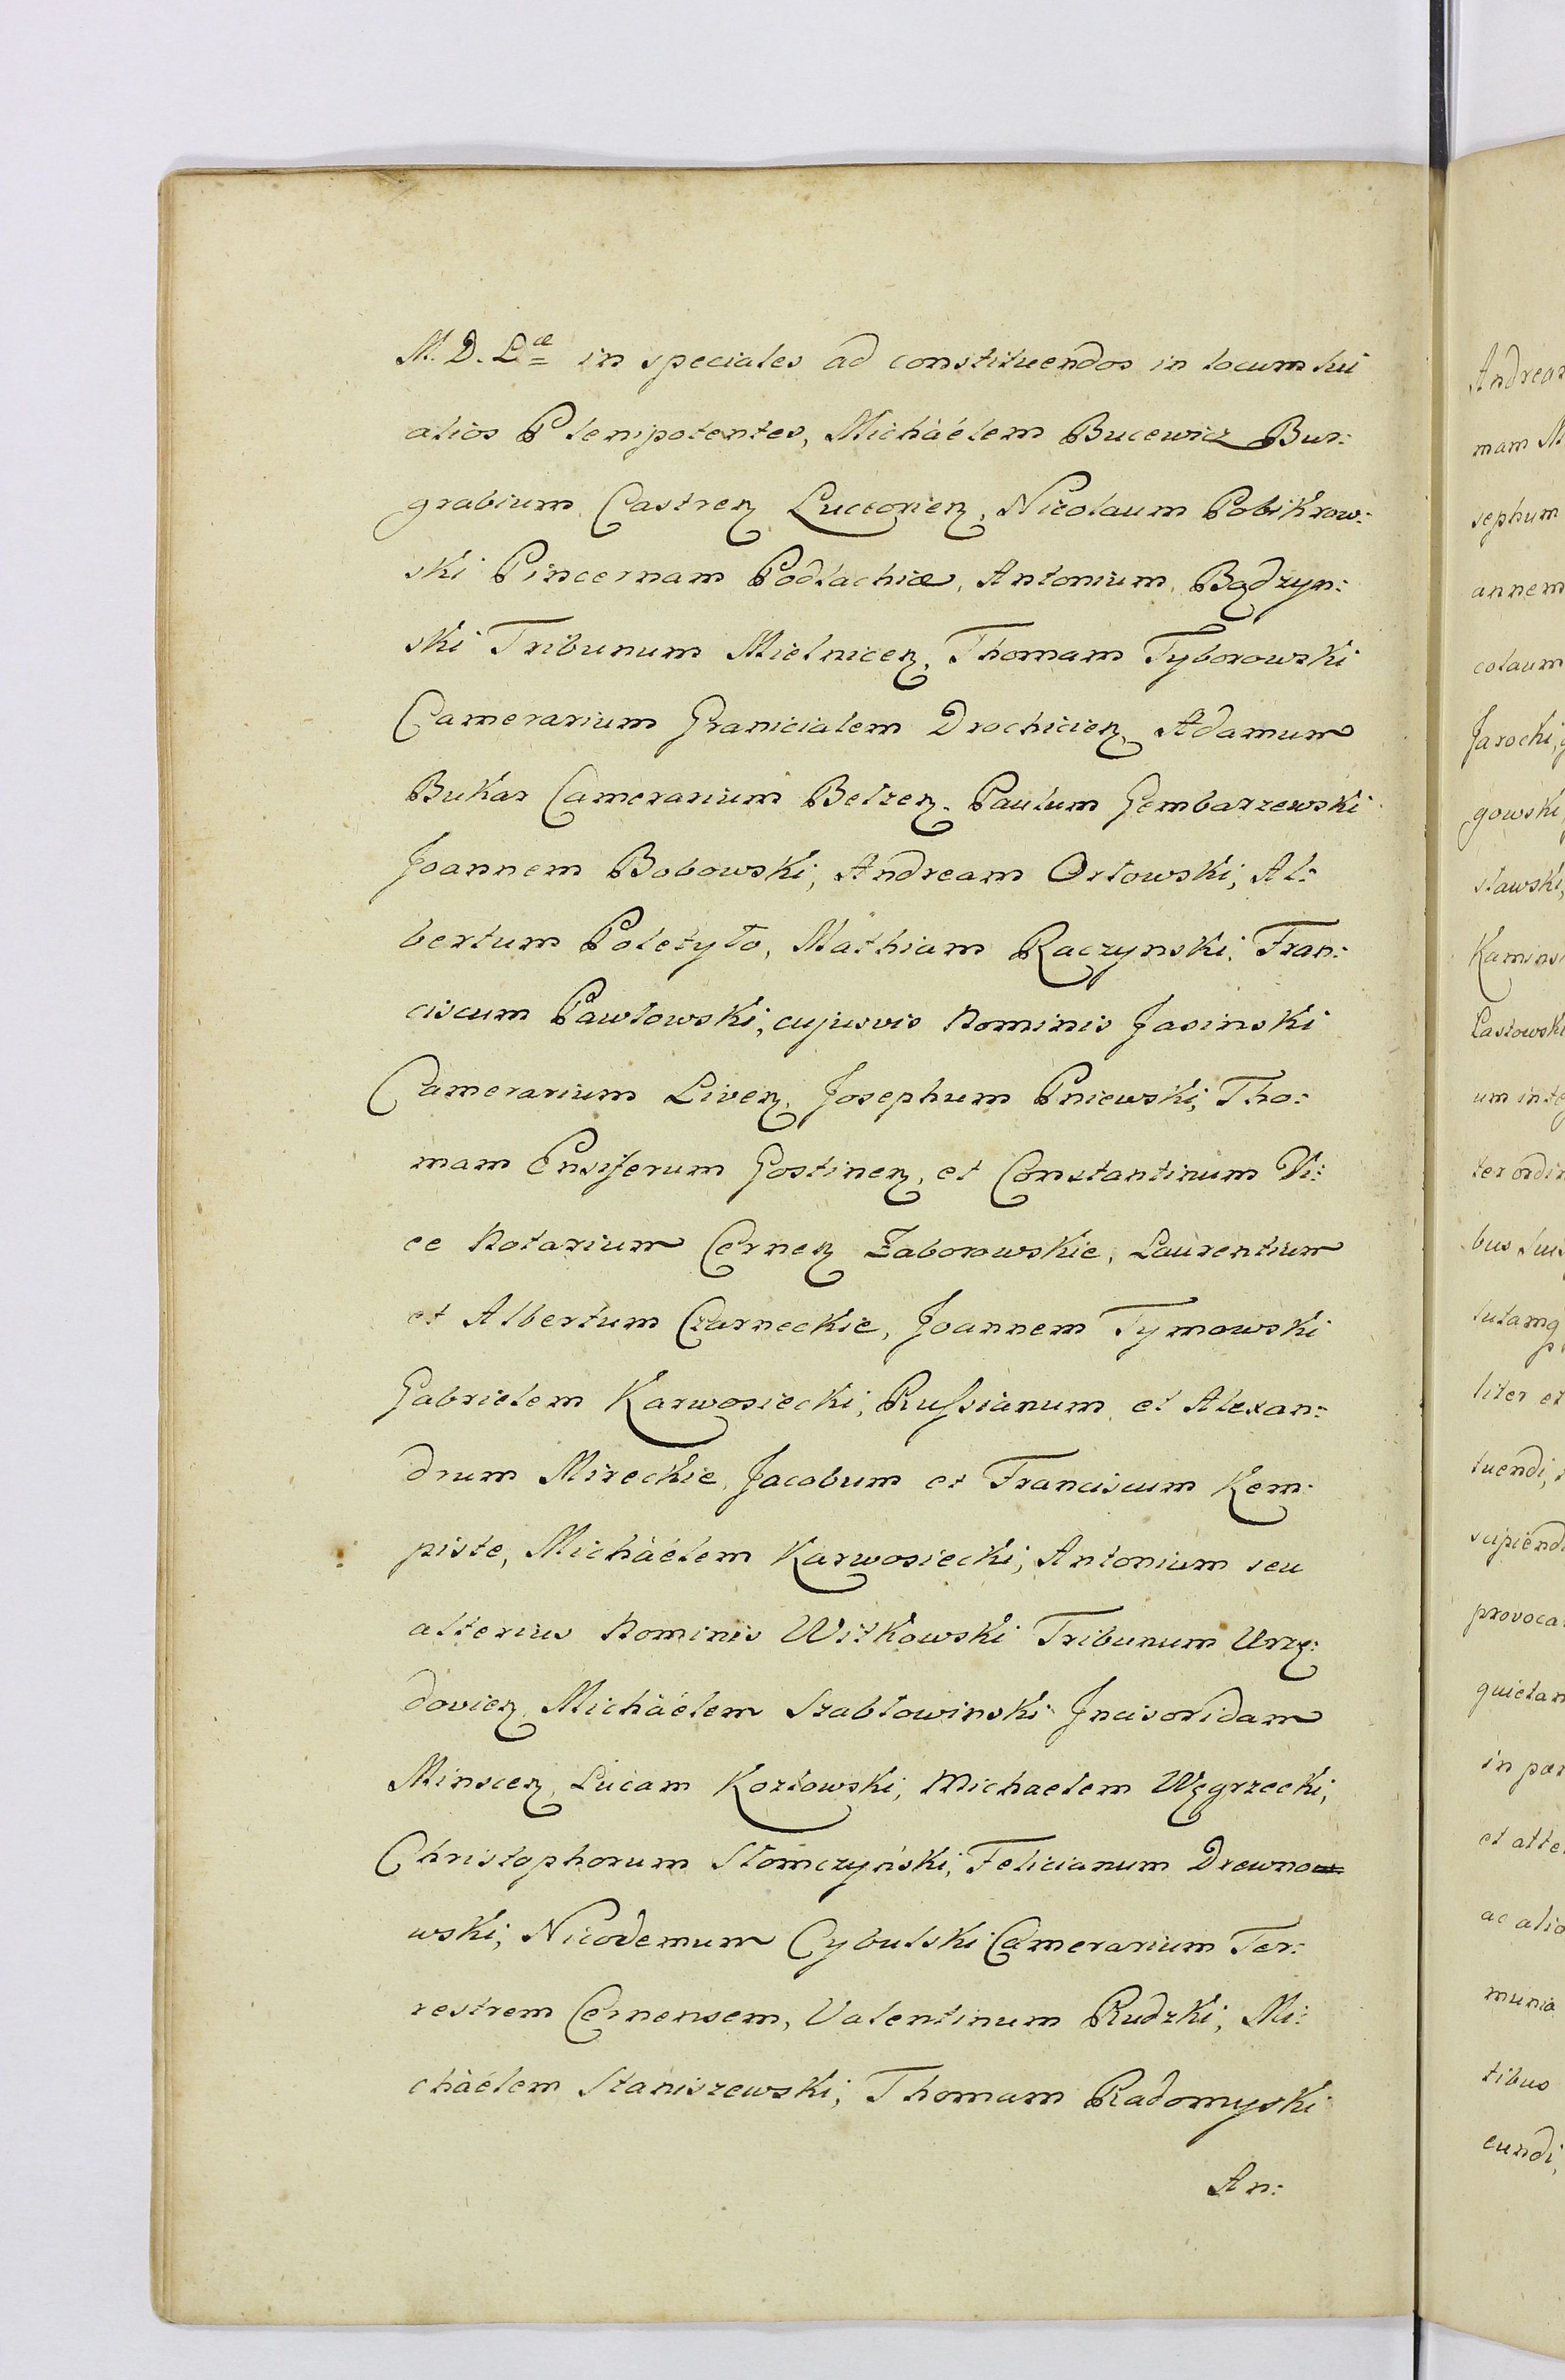 M. D. Læ in speciales ad constituendos in locum sui
alios Plenipotentes, Michàélem Bucewicz Bur:
grabium Castren. Luceorien, Nicolaum Pobikrow:
ski Pincernam Podlachiæ, Antonium Bądzyn:
ski Tribunum Mielnicen, Thomam Tyborowski
Camerarium Granicialem Drochicien, Adamum
Bukar Camerarium Belzen. Paulum Gembarzewski
Joannem Bobowski, Andream Orłowski, Al:
bertum Poletyło, Mathiam Raczynski, Fran:
ciscum Pawłowski, cujusvis Nominis Jasinski
Camerarium Liven, Josephum Pniewski, Tho:
mam Ensiferum Gostinen, et Constantinum Vi:
ce Notarium Cernen Zaborowskie, Laurentium
et Albertum Czarneckie, Joannem Tymowski
Gabrielem Karwosiecki, Russianum et Alexan:
drum Mireckie, Jacobum et Franciscum Kem:
piste, Michàélem Karwosiecki, Antonium seu
alterius Nominis Witkowski Tribunum Urzę:
dovien, Michàélem Szabłowinski Incisoridam
Minscen, Lucam Kozłowski, Michaelem Węgrzecki,
Christophorum Słomczyński, Felicianum Drewno
wski, Nicodemum Cybulski Camerarium Ter:
restrem Cernensem, Valentinum Rudzki, Mi:
chàélem Staniszewski, Thomam Radomyski
An:
Andream
mam M
sephum
annem
colaum
Jarocki,
gowski
sławski,
Kamins
Lasłowski
um inte
ter ordin
bus sui
lutamq
liter et
tuendi,
scipiend
provoca
quietan
in par
et atte
ac alio
munia
tibus
cundi,